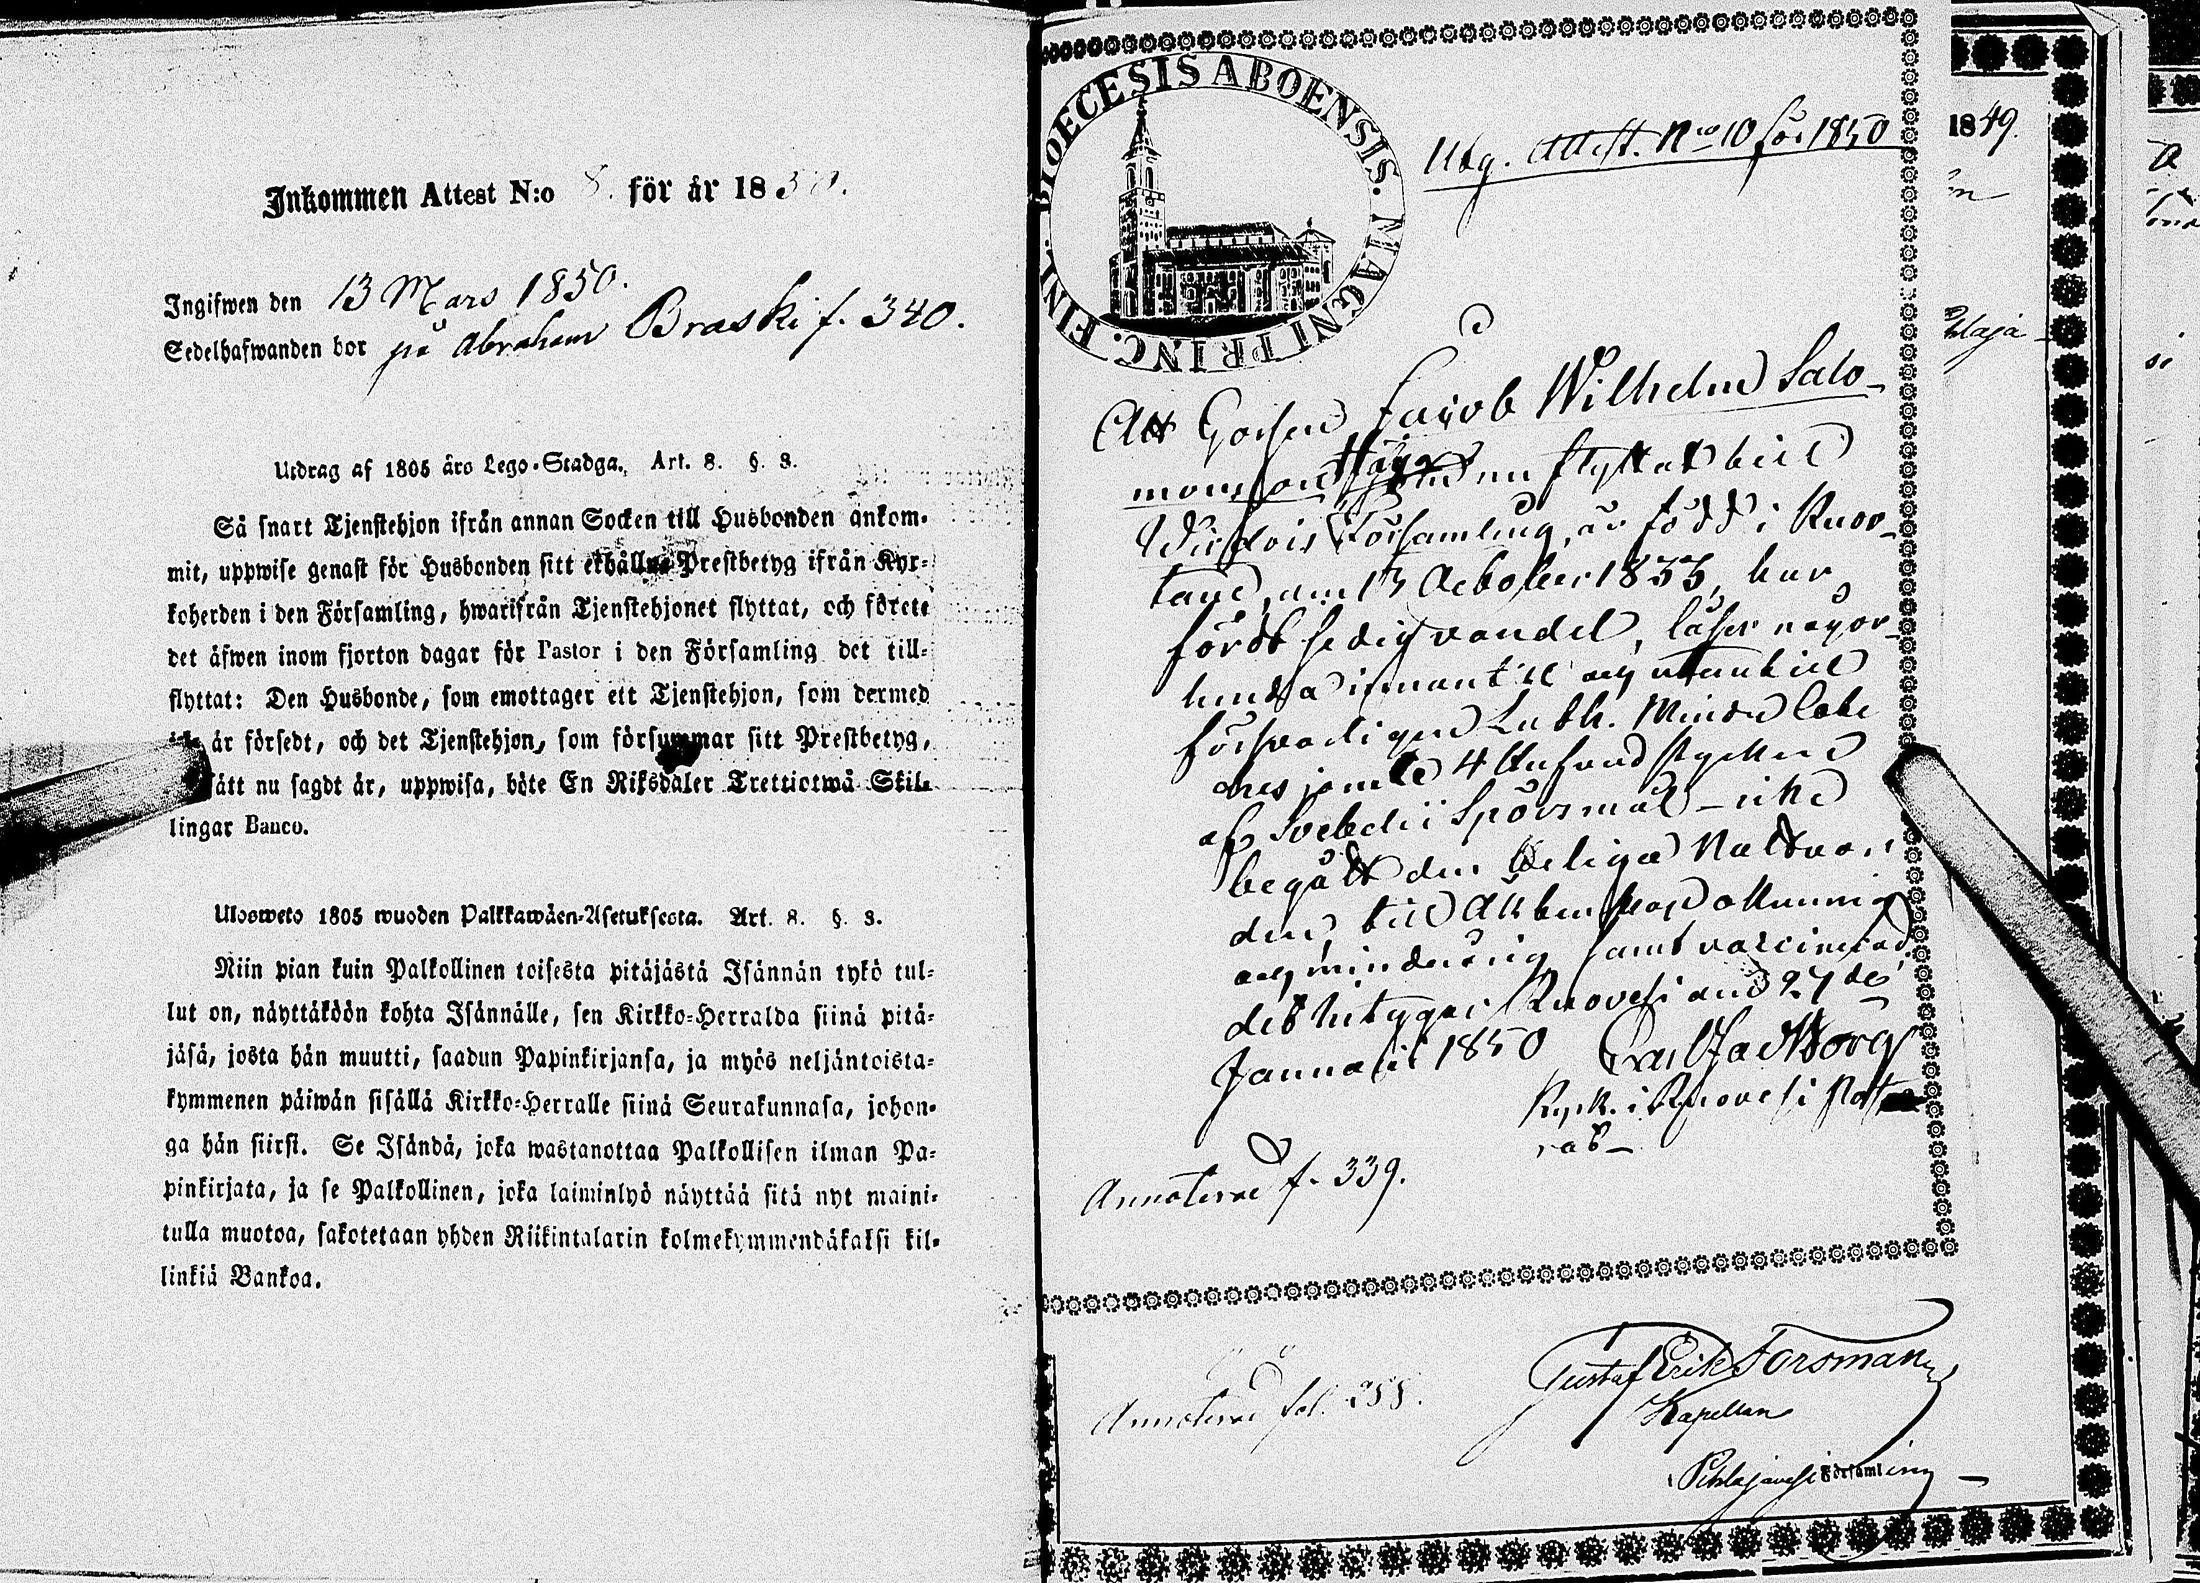 Inkommen Attest N:o 8. för år 1850.
Ingifwen den 13 Mars 1850.
Sedelhafwanden bor på Abraham Braski f. 340.
Utdrag af 1805 års Lego-Stadga. Art. 8. §. 8.
Så snart Tjenstehjon ifrån annan Socken till Husbonden ankom-
mit, uppwise genast för Husbonden sitt erhållna Prestbetyg ifrån Kyr-
koherden i den Församling, hwarifrån Tjenstehjonet flyttat, och förete
det äfwen inom fjorton dagar för Pastor i den Församling det till-
flyttat: Den Husbonde, som emottager ett Tjenstehjon, som dermed
är försedt, och det Tjenstehjon, som försummar sitt Prestbetyg,
sätt nu sagdt är, uppwisa, böte En Riksdaler Trettiotwå Skil-
lingar Banco.
Ulosweto 1805 wuoden Palkkawäen-Asetuksesta. Art. 8. §. 8.
Niin pian kuin Palkollinen toisesta pitäjästä Isännän tykö tul-
lut on, näyttäköön kohta Isännälle, sen Kirkko-Herralda siinä pitä-
jäsä, josta hän muutti, saadun Papinkirjansa, ja myös neljäntoista-
kymmenen päiwän sisällä Kirkko-Herralle siinä Seurakunnasa, johon-
ga hän siirsi. Se Isändä, joka wastanottaa Palkollisen ilman Pa-
pinkirjata, ja se Palkollinen, joka laiminlyö näyttää sitä nyt maini-
tulla muotoa, sakotetaan yhden Riikintalarin kolmekymmendäkaksi kil-
linkiä Bankoa.
DIOECESIS ABOENSIS. MAGNI PRINC. FINL.
Utg. Attest. No 10 för 1850
Att Gossen Jacob Wilhelm Salo-
monsson nu flyttat till
Wirdois Församling, är född i Ruov-
den 13 October 1833, har
fördt sedig vandel, läser någor-
lunda innantill och utantill
försvarligen Luth. Mindre Cate
ches jemte 4 Stycken
af Svebelii Spörsmål – icke
begått den Heliga Nattvar-
den, till
och minderårig samt vaccinerad,
det betygar Ruovesi den 27de
Januarii 1850
Kyrk. i Ruovesi Past
rat –
Annoterad f. 339.
Annoterad fol. 288.
Gustaf Erik Forsman
Kapellan
Pihlajavesi Församling
1849.